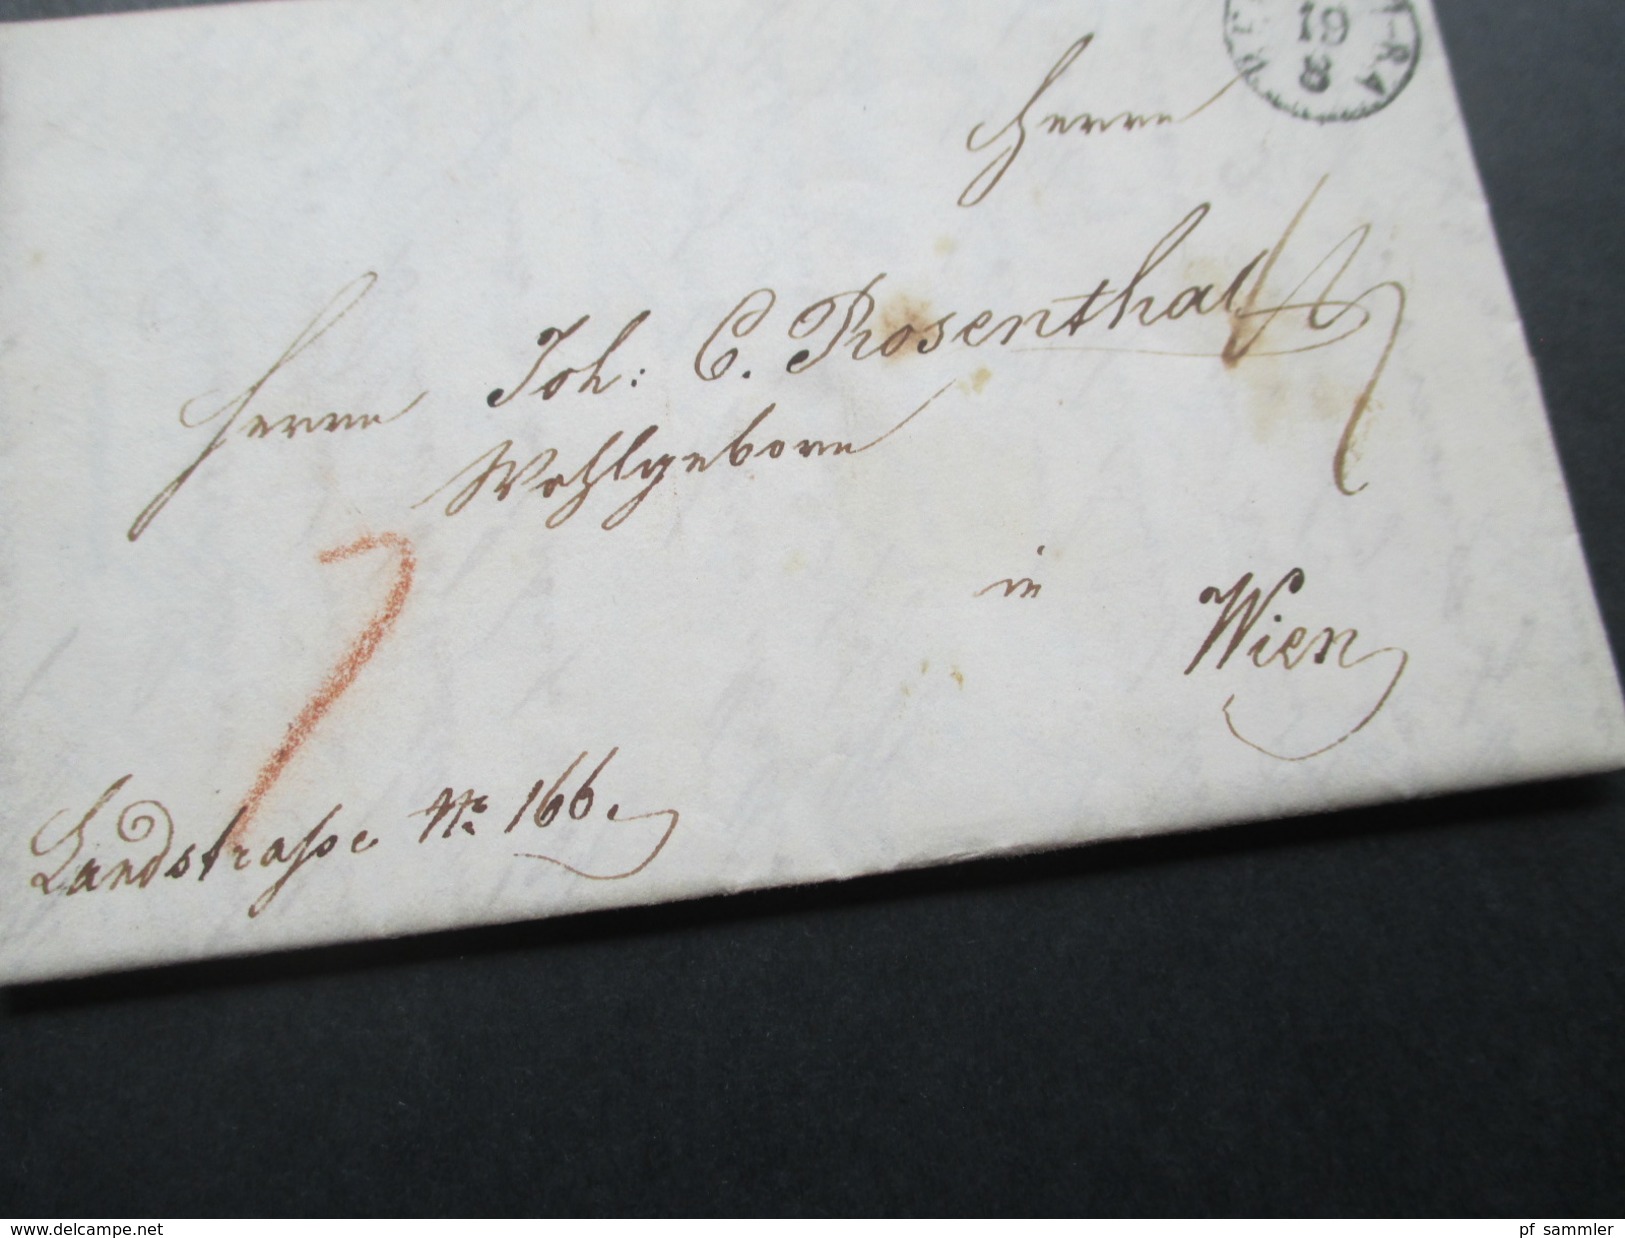 19
3
Herrn
Herrn Joh: C. Rosenthal
Wohlgeboren
in
Wien
7
Landstraße No 166.
www.delcampe.net
pf_sammler